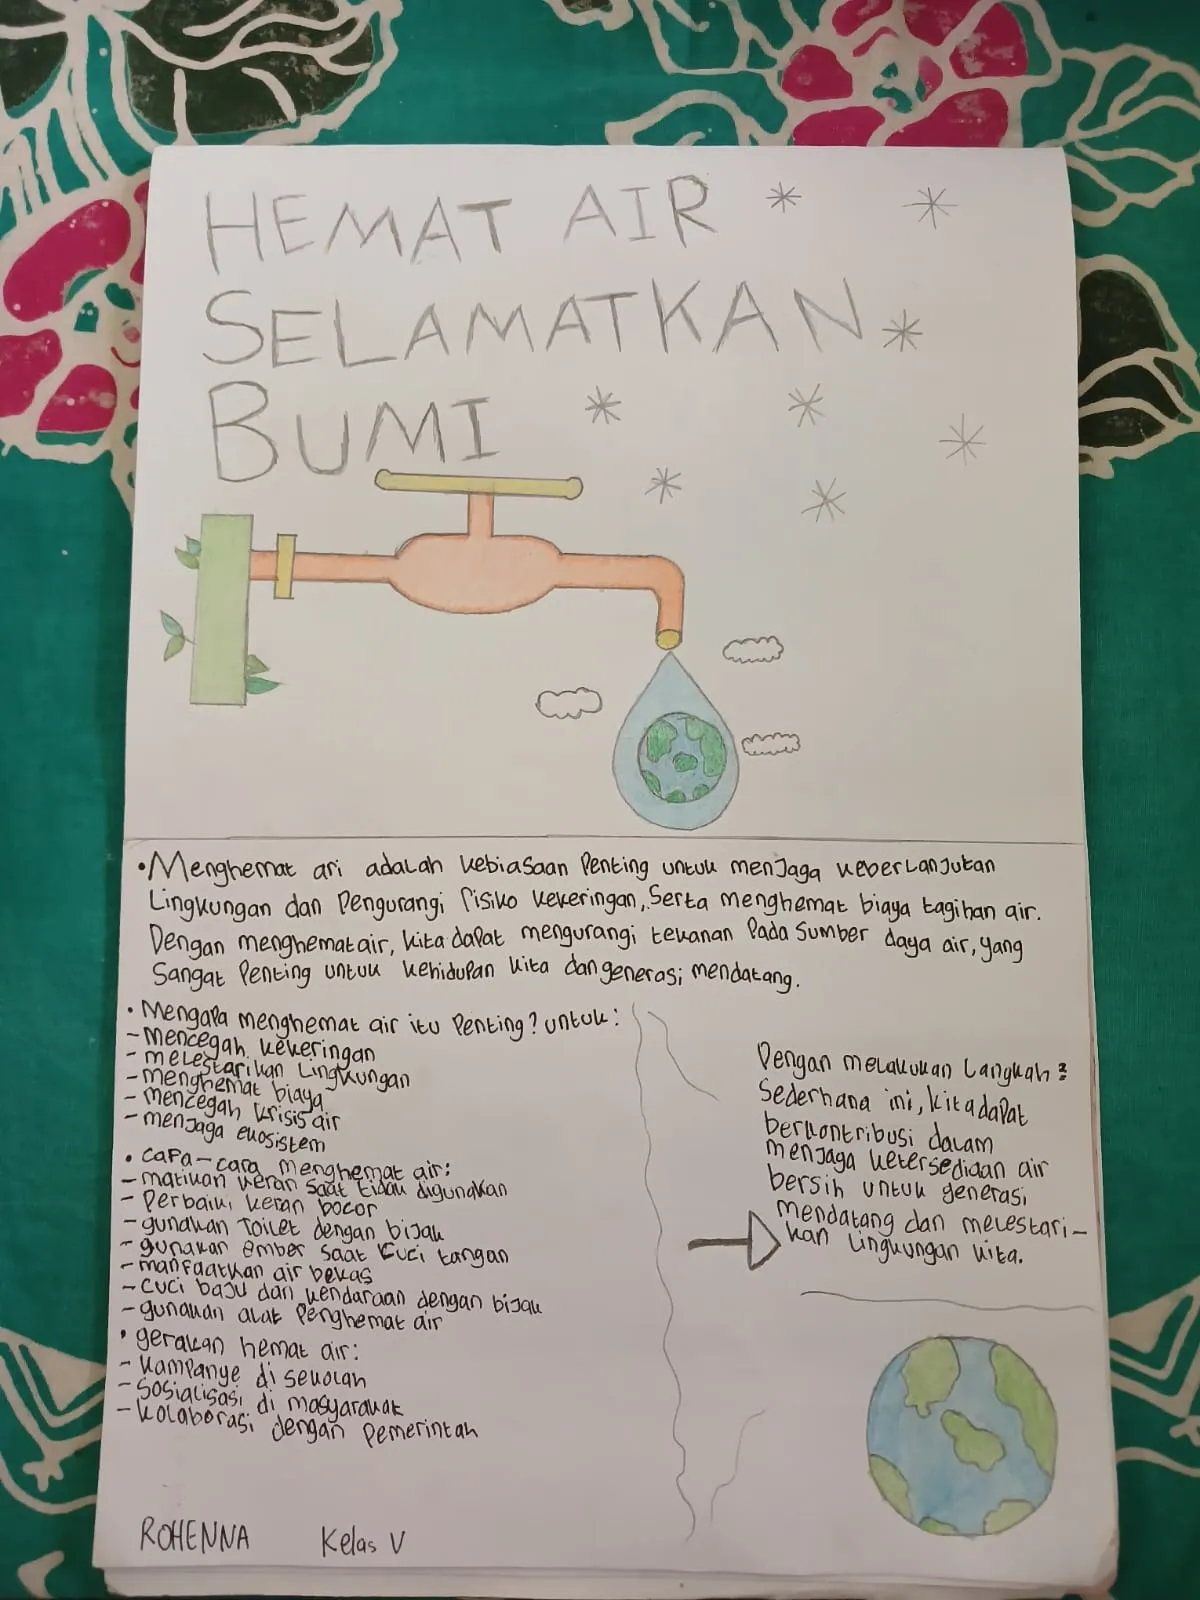 HEMAT AIR
SELAMATKAN
BUMI
• Menghemat ari adalah kebiasaan Penting untuk menjaga keberlanjutan
Lingkungan dan Pengurangi risiko kekeringan, Serta menghemat biaya tagihan air.
Dengan menghemat air, kita dapat mengurangi tekanan Pada Sumber daya air, yang
Sangat Penting untuk kehidupan kita dan generasi mendatang.
• Mengapa menghemat air itu Penting? untuk:
- Mencegah kekeringan
- melestarikan Lingkungan
- menghemat biaya
- mencegah krisis air
- menjaga ekosistem
• capa-cara menghemat air:
- matikan keran saat tidak digunakan
- Perbaiki keran bocor
- gunakan Toilet dengan bijak
- gunakan ember saat Cuci tangan
- manfaatkan air bekas
- cuci baju dan kendaraan dengan bijak
- gunakan alat Penghemat air
• gerakan hemat air:
- Kampanye di sekolah
- Sosialisasi di masyarakat
- kolaborasi dengan Pemerintah
Dengan melakukan Langkah²
Sederhana ini, kita dapat
berkontribusi dalam
menjaga ketersediaan air
bersih untuk generasi
mendatang dan melestari-
kan Lingkungan kita.
ROHENNA Kelas V